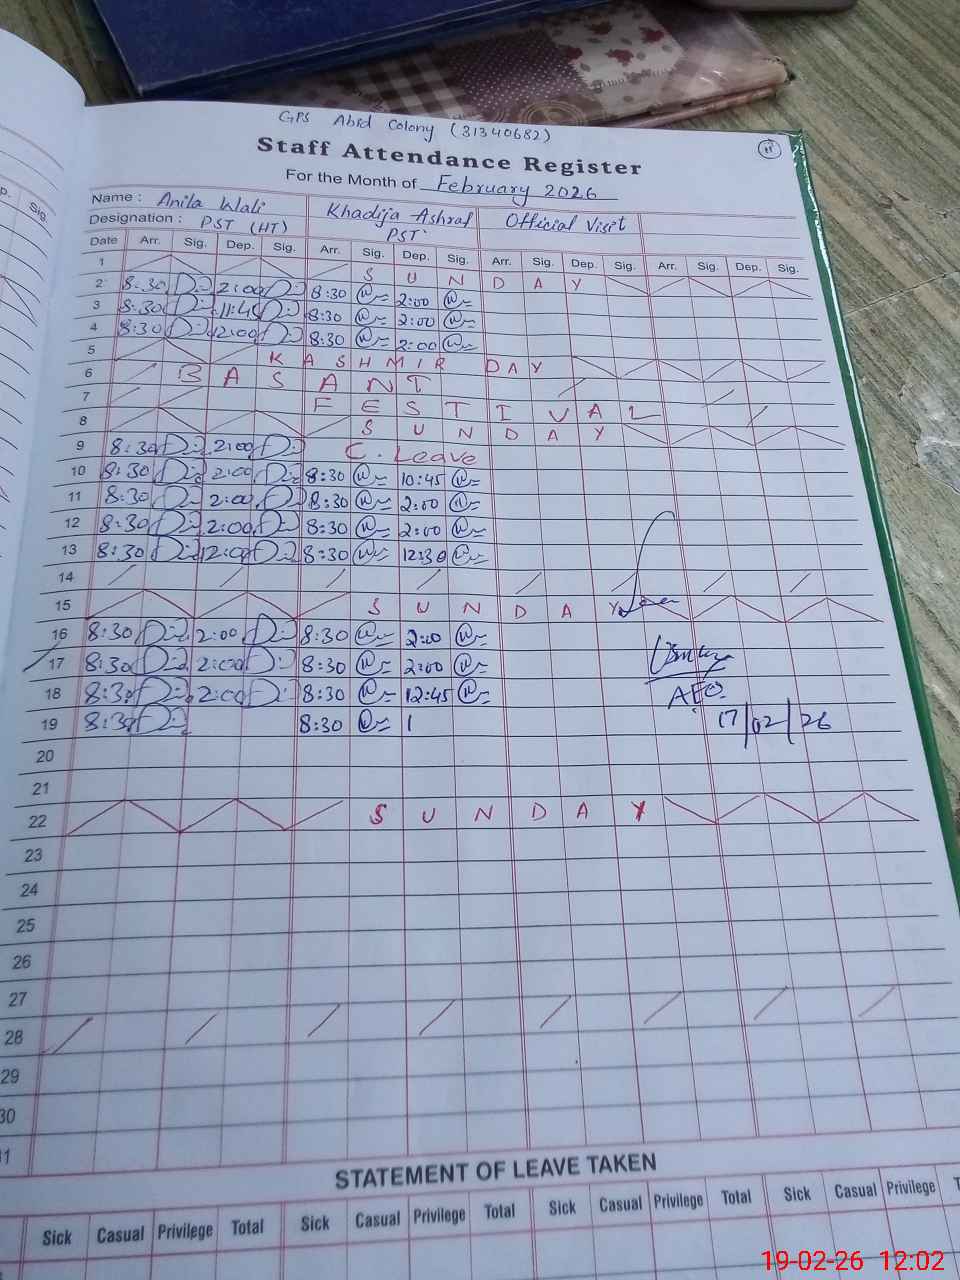 GPS Abid Colony (31340682)
Staff Attendance Register
For the Month of February 2026
Name : Anila Wali Khadija Ashraf Official Visit
Designation : PST (HT) PST
Date Arr. Sig. Dep. Sig. Arr. Sig. Dep. Sig. Arr. Sig. Dep. Sig. Arr. Sig. Dep. Sig.
1 S U N D A Y
2 8:30 2:00 8:30 2:00
3 8:30 11:45 8:30 2:00
4 8:30 2:00 8:30 2:00
5 K A S H M I R D A Y
6 B A S A N T
7 F E S T I V A L
8 S U N D A Y
9 8:30 2:00 C. Leave
10 8:30 2:00 8:30 10:45
11 8:30 2:00 8:30 2:00
12 8:30 2:00 8:30 2:00
13 8:30 12:00 8:30 12:30
14
15 S U N D A Y
16 8:30 2:00 8:30 2:00
17 8:30 2:00 8:30 2:00
18 8:30 2:00 8:30 12:45
AEO
19 8:30 8:30 1
17/02/26
20
21
22 S U N D A Y
23
24
25
26
27
28
29
30
31
STATEMENT OF LEAVE TAKEN
Sick Casual Privilege Total Sick Casual Privilege Total Sick Casual Privilege Total Sick Casual Privilege
19-02-26 12:02